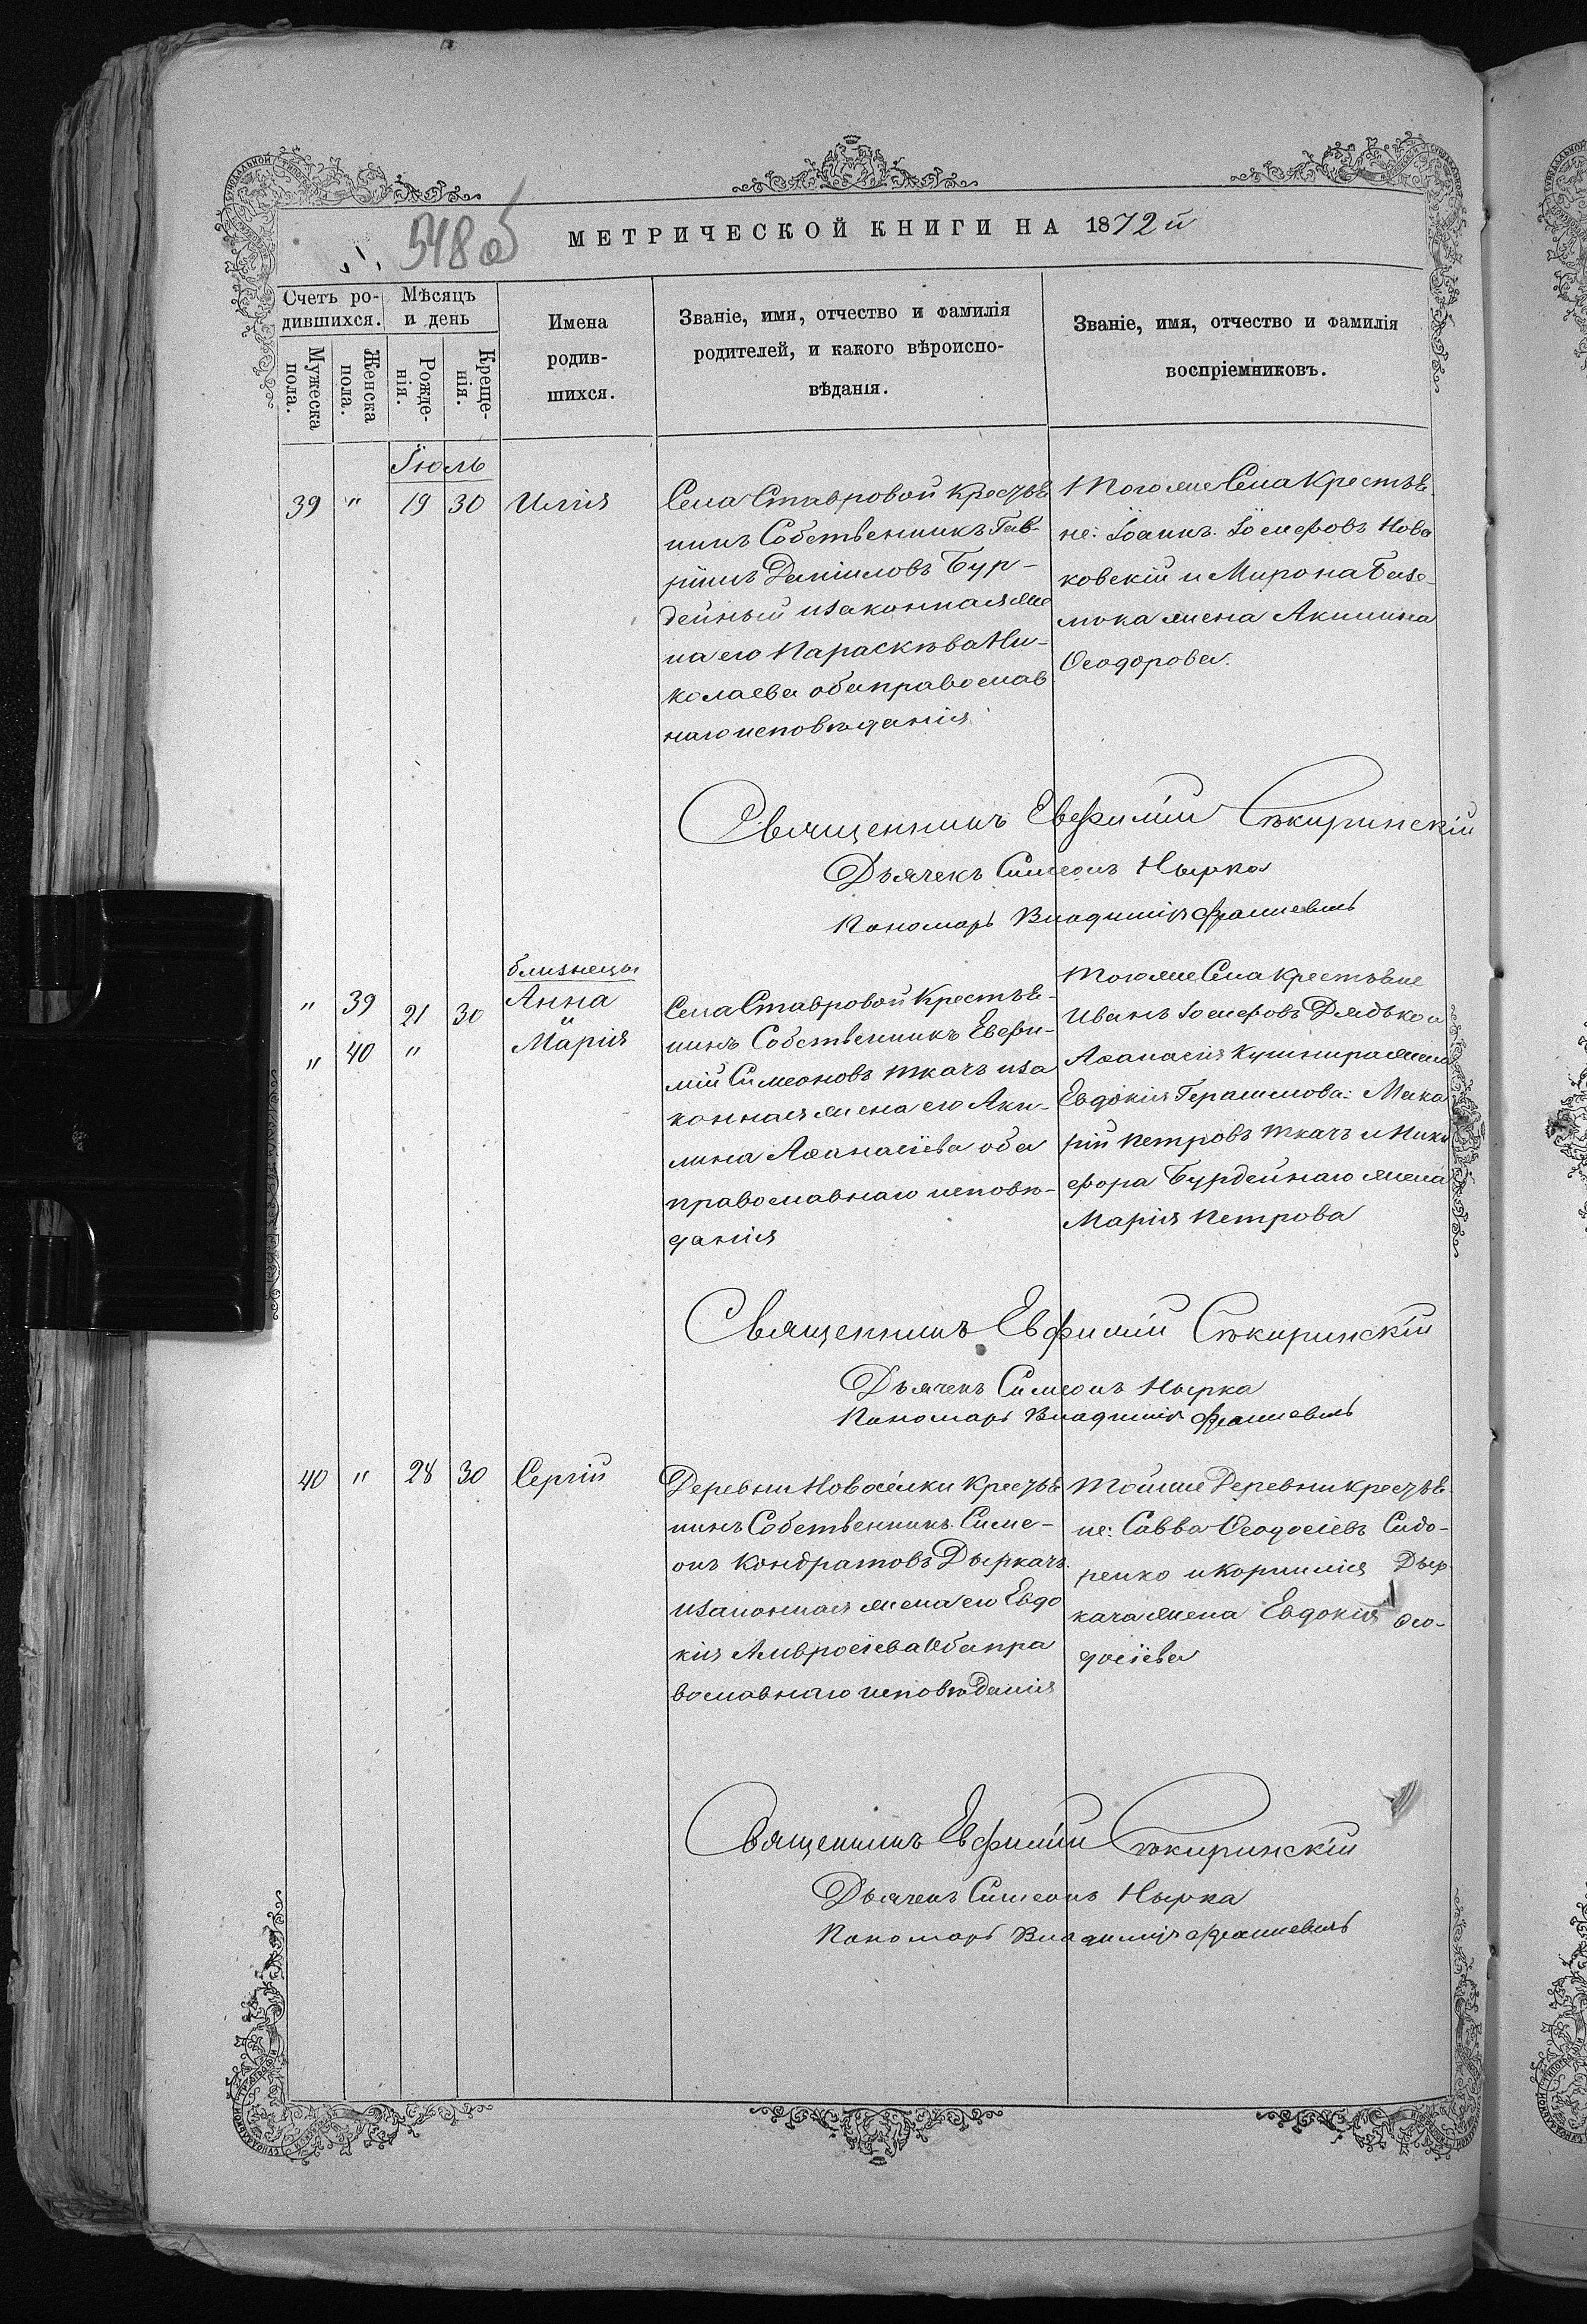 548 об
МЕТРИЧЕСКОЙ КНИГИ НА 1872 й
Счетъ ро-
дившихся.
Мужеска
пола.
Женска
пола.
Мѣсяцъ
и день
Рожде-
нія.
Креще-
нія.
Имена
родив-
шихся.
Званіе, имя, отчество и фамилія
родителей, и какого вѣроиспо-
вѣданія.
Званіе, имя, отчество и фамилія
воспріемниковъ.
Іюль
39 " 19 30 Илія
Села Ставровой Крестья
нинъ Собственникъ Гав-
ріилъ Даніиловъ Бур-
дейный и законная же
на его Параскѣва Ни-
колаева оба православ
наго исповѣданія
Того же Села Крестья-
не: Іоаннъ Іосифовъ Нова
ковскій и Мирона
жена Акилина
Ѳеодорова.
Священникъ Евфимій Сѣкиринскій
Дьячекъ Симеонъ Нырка
Пономарь Владиміръ
близнецы
" 39 21 30 Анна
и
" 40 " Марія
Села Ставровой Крестья-
нинъ Собственникъ Евфи-
мій Симеоновъ Ткачъ и за
конная жена его Аки-
лина Аѳанасіева оба
православнаго исповѣ-
данія
Того же Села Крестьяне
Иванъ Іосифовъ Дядько и
Аѳанасія Кушнира жена
Евдокія Герасимова: Мака
рій Петровъ Ткачъ и Ники
фора Бурдейнаго жена
Марія Петрова
Священникъ Евфимій Сѣкиринскій
Дьячекъ Симеонъ Нырка
Пономарь Владиміръ
40 " 28 30 Сергій
Деревни Новосёлки Крестья
нинъ Собственникъ Симе-
онъ Кондратовъ Дыркачъ
и законная жена его Евдо
кія Амвросіева Оба пра
вославнаго исповѣданія
Той же Деревни Крестья-
не: Савва Ѳеодосіевъ Сидо-
ренко и Корнилія Дыр
кача жена Евдокія Ѳео-
досіева
Священникъ Евфимій Сѣкиринскій
Дьячекъ Симеонъ Нырка
Пономарь Владиміръ